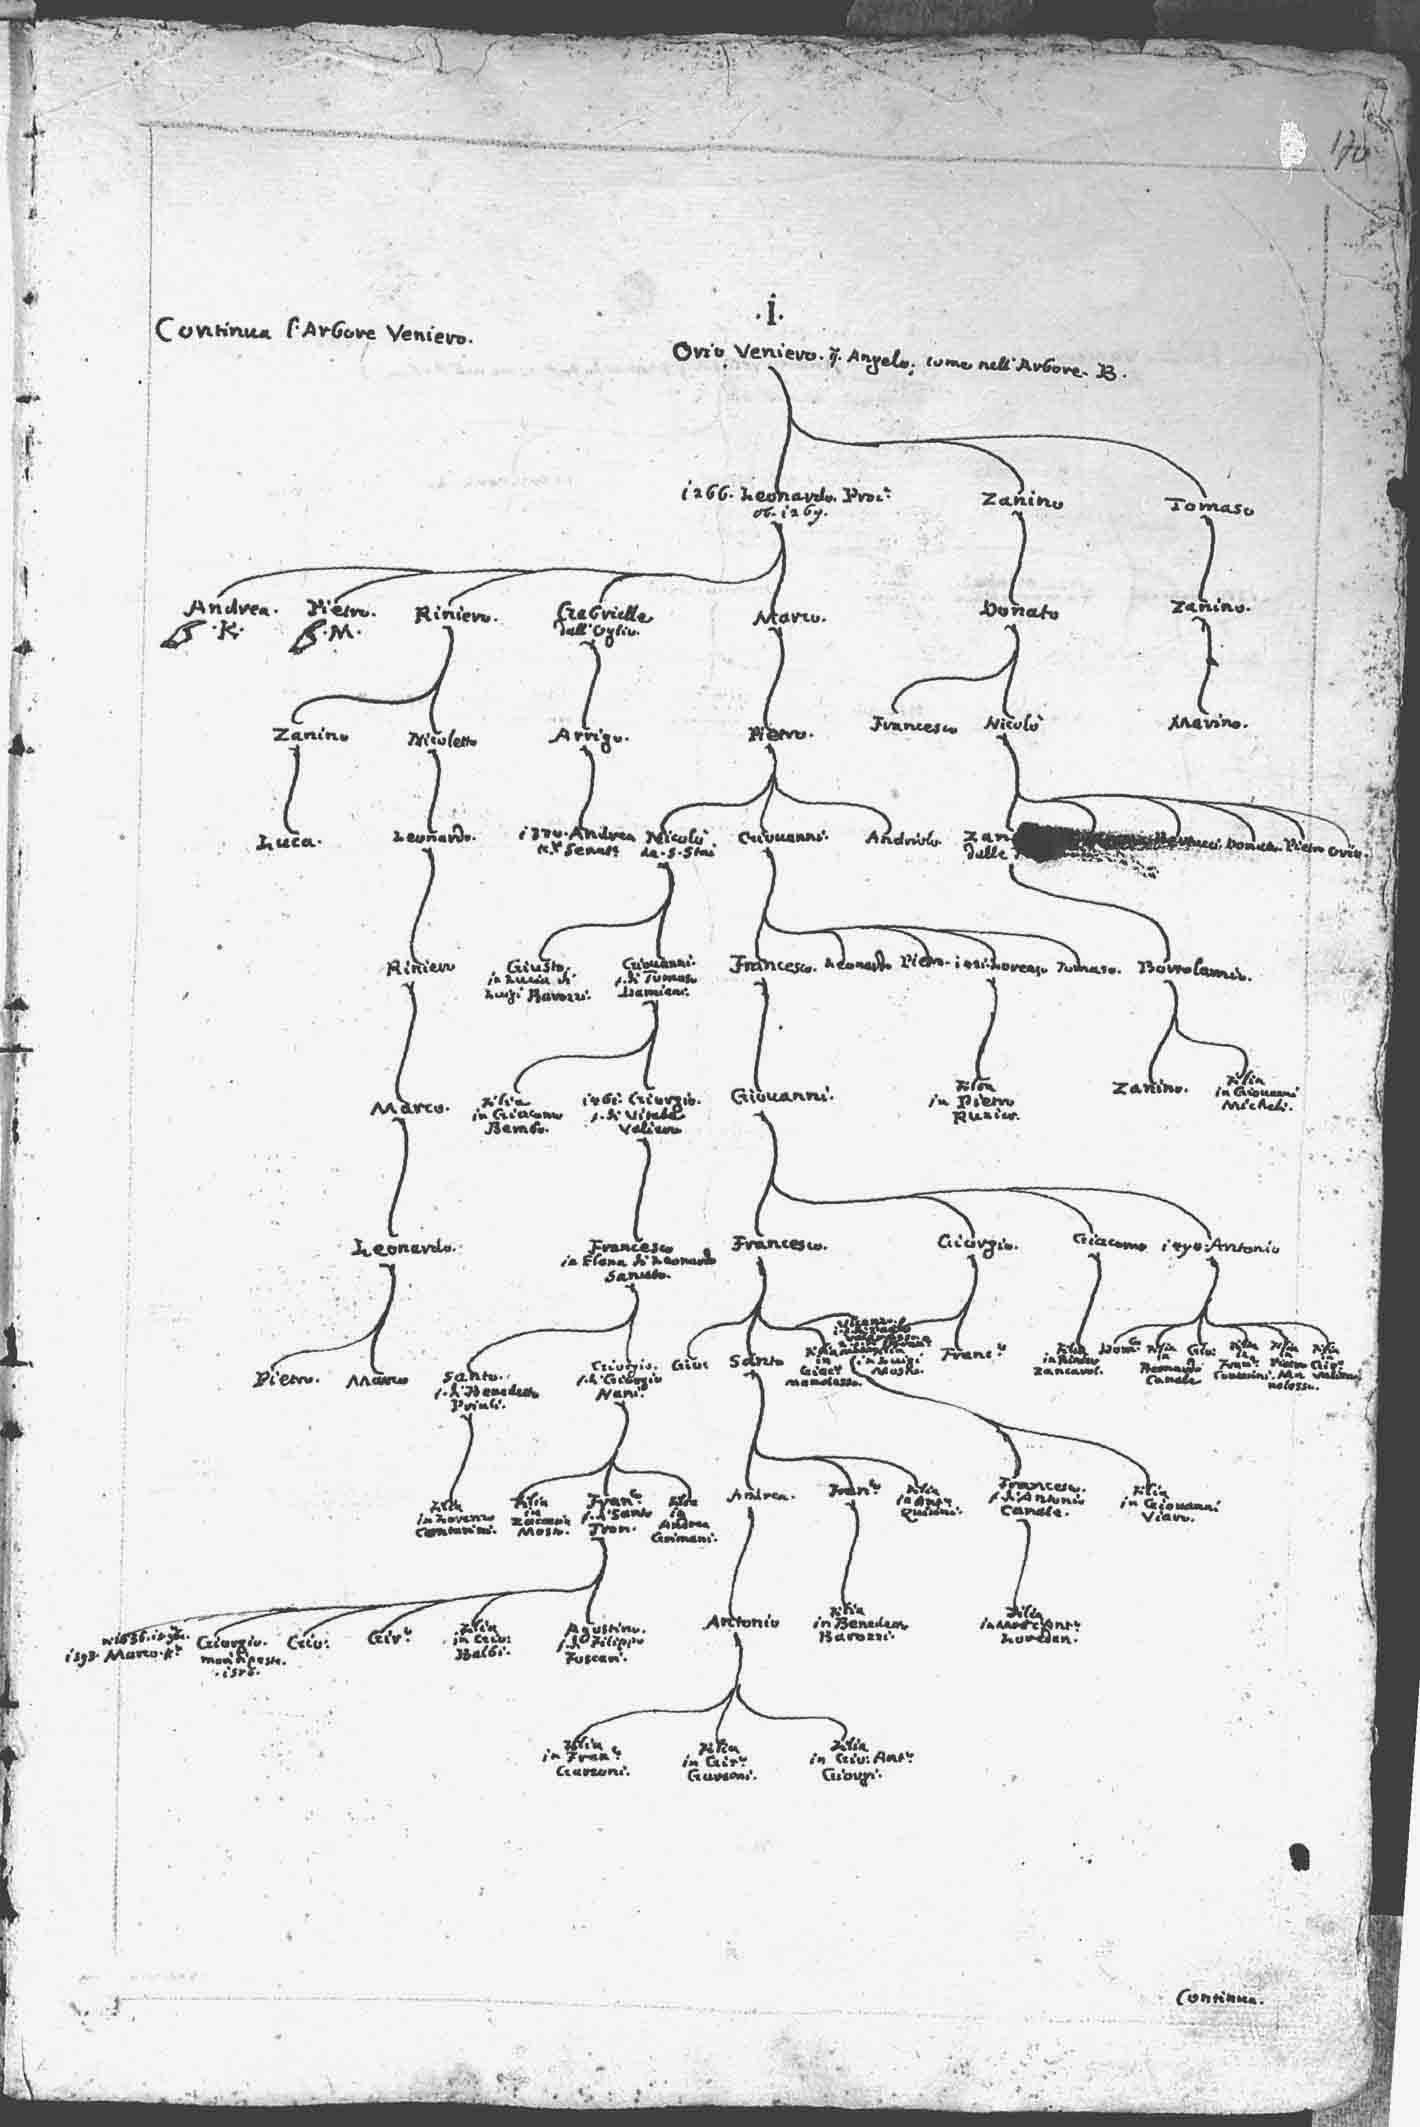 170
.I.
Continua l'Arbore Veniero.
Orio Veniero. q. Angelo, come nell'Arbore. B.
1266. Leonardo. Proc.r
ob. 1269.
Zanino
Tomaso
Andrea.
.K.
Pietro.
.M.
Riniero.
Gabrielle
dall'Oglio.
Marco.
Donato
Zanino.
Zanino
Nicoletto
Arrigo.
Pietro.
Francesco
Nicolò
Marino.
Luca.
Leonardo.
1370. Andrea
Senat.r
Nicolò
da. S. Stai
Giovanni.
Andriolo.
Zan
dalle
Donato
Pietro
Orio.
Riniero
Giusto.
in Lucia di
Luigi Barozzi.
Giovanni.
f. di Tomaso
Damiani.
Francesco.
Leonardo
Pietro.
Lorenzo
Tomaso.
Bortolamio.
Marco.
Filia
in Giacomo
Bembo.
Giorgio.
f. di Vitale
Valiero
Giovanni.
Filia
in Pietro
Ruzier.
Zanino.
Filia
in Giovanni
Micheli.
Leonardo.
Francesco
in Elena di Leonardo
Sanudo.
Francesco.
Giorgio.
Giacomo
1490. Antonio
Pietro.
Marco
Santo.
f. di Benedetto
Priuli.
Giorgio.
f. di Giorgio
Nani.
Giov.
Santo
Filia
in
Giac.o
in Luigi
Mosto.
Franc.o
Filia
Zancarol.
Filia
in
Bernardo
Canale
Gio:
Filia
in
Fran.o
Contarini.
Filia
in
Pietro
Filia
in
Gir.o
Filia
in Lorenzo
Contarini.
Filia
in
Zaccaria
Mosto.
Fran.o
f. di Santo
Tron.
Filia
in
Andrea
Grimani.
Andrea.
Fran.o
Filia
in Ant.o
Querini.
Francesco.
f. di Antonio
Canale.
Filia
in Giovanni
Viaro.
1593. Marco. K.r
Giorgio.
morì di peste.
1576.
Gio:
Gir.o
Filia
in Gio:
Balbi.
Agustino.
f. di Filippo
Foscari.
Antonio
Filia
in Benedetto
Barozzi.
Filia
in Marc'Ant.o
Loredan.
Filia
in Fran.o
Garzoni.
Filia
in Gir.o
Garzoni.
Filia
in Gio: Ant.o
Giorgi.
Continua.